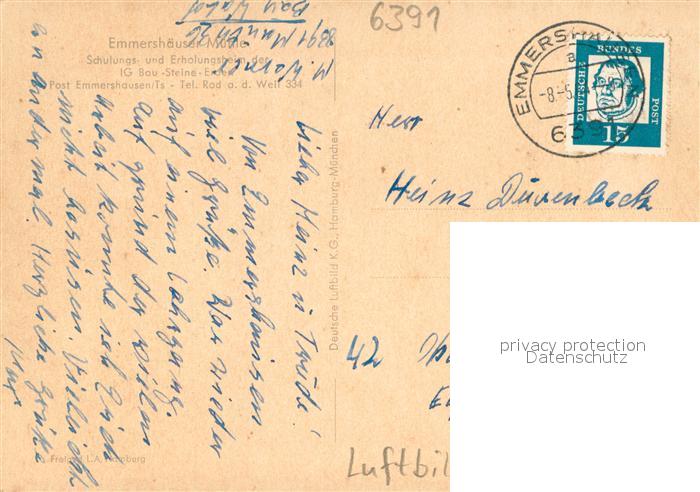 6391
Emmershäuser Mühle
Schulungs- und Erholungsheim der
IG Bau-Steine-Erden
Post Emmershausen/Ts - Tel. Rod a. d. Weil 334
Liebe Heinz u Trude!
Von Emmershausen
viel Grüße. War wieder
auf einem Lehrgang.
auf grund der vielen
Arbeit konnte ich Euch
nicht besuchen. Vielleicht
ein andermal. Herzliche Grüße
Deutsche Luftbild K.G., Hamburg-München
Freigeg. L.A. Hamburg
EMMERSHAU
a
-8.-5.
6391
DEUTSCHE
BUNDES
POST
15
Herr
Heinz Düvenbeck
42
Luftbil
privacy protection
Datenschutz